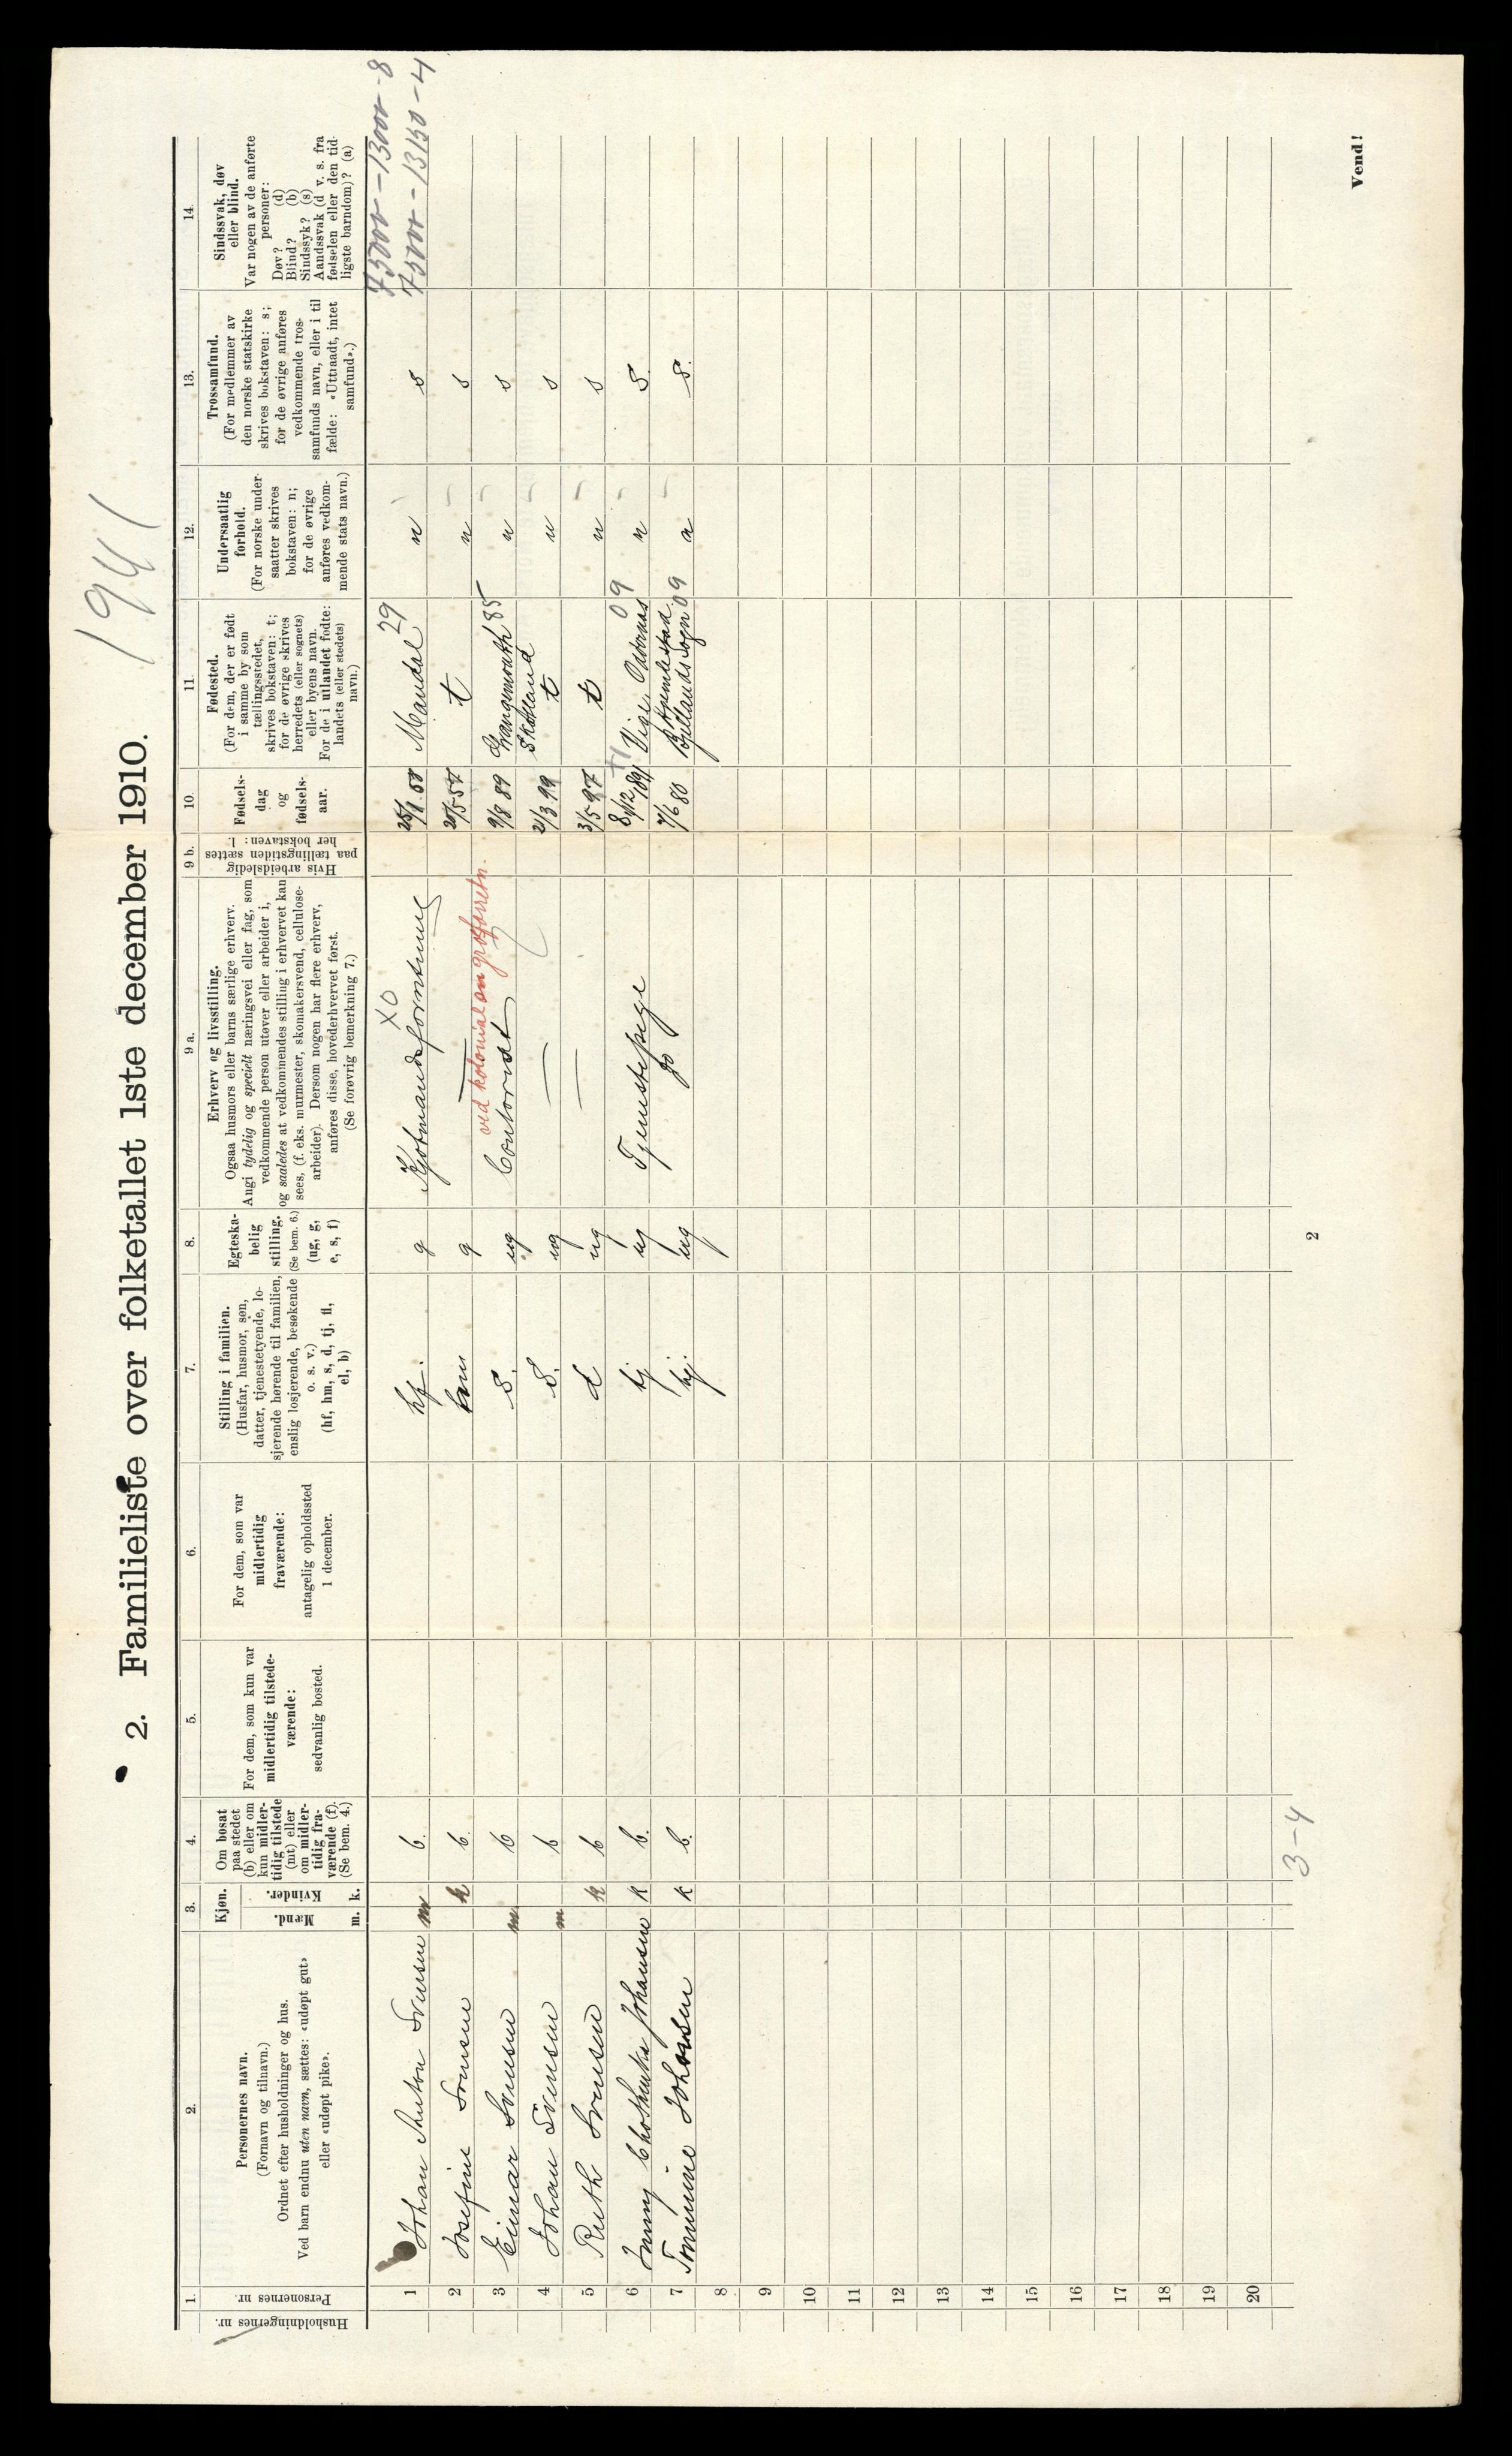 1941
2. Familieliste over folketallet 1ste december 1910.
1.
Husholdningernes nr.
Personernes nr.
2.
Personernes navn.
(Fornavn og tilnavn.)
Ordnet efter husholdninger og hus.
Ved barn endnu uten navn, sættes: «udøpt gut»
eller «udøpt pike».
3.
Kjøn.
Mænd.
Kvinder.
m. k.
4.
Om bosat
paa stedet
(b) eller om
kun midler-
tidig tilstede
(mt) eller
om midler-
tidig fra-
værende (f).
(Se bem. 4.)
5.
For dem, som kun var
midlertidig tilstede-
værende:
sedvanlig bosted.
6.
For dem, som var
midlertidig
fraværende:
antagelig opholdssted
1 december.
7.
Stilling i familien.
(Husfar, husmor, søn,
datter, tjenestetyende, lo-
sjerende hørende til familien,
enslig losjerende, besøkende
o. s. v.)
(hf, hm, s, d, tj, fl,
el, b)
8.
Egteska-
belig
stilling.
(Se bem. 6.)
(ug, g,
e, s, f)
9 a.
Erhverv og livsstilling.
Ogsaa husmors eller barns særlige erhverv.
Angi tydelig og specielt næringsvei eller fag, som
vedkommende person utøver eller arbeider i,
og saaledes at vedkommendes stilling i erhvervet kan
sees, (f. eks. murmester, skomakersvend, cellulose-
arbeider). Dersom nogen har flere erhverv,
anføres disse, hovederhvervet først.
(Se forøvrig bemerkning 7.)
9 b.
Hvis arbeidsledig
paa tællingstiden sættes
her bokstaven: l.
10.
Fødsels-
dag
og
fødsels-
aar.
11.
Fødested.
(For dem, der er født
i samme by som
tællingsstedet,
skrives bokstaven: t;
for de øvrige skrives
herredets (eller sognets)
eller byens navn.
For de i utlandet fødte:
landets (eller stedets)
navn.)
12.
Undersaatlig
forhold.
(For norske under-
saatter skrives
bokstaven: n;
for de øvrige
anføres vedkom-
mende stats navn.)
13.
Trossamfund.
(For medlemmer av
den norske statskirke
skrives bokstaven: s;
for de øvrige anføres
vedkommende tros-
samfunds navn, eller i til-
fælde: «Uttraadt, intet
samfund».)
14.
Sindssvak, døv
eller blind.
Var nogen av de anførte
personer:
Døv? (d)
Blind? (b)
Sindssyk? (s)
Aandssvak (d. v. s. fra
fødselen eller den tid-
ligste barndom)? (a)
XO
1 Johan Anton Svensen m b. hf. g Kjøbmandsforretning Mandal 29 n s
2 Josefine Svensen k b. hm g 20/5-57 t n s
ved kolonial en grosforretn.
3 Einar Svensen m b s. ug Contorist 9/8 89 85 n s
Skotland
4 Johan Svensen m b s. ug 21/3 99 t n s
5 Ruth Svensen k b d ug 3/5-97 t n s
6 Johansen k b. tj ug Tjenestepige 8/12 1891 Vige, Oddernes 09 n s.
7 Tomine Johansen k b. tj. ug do 7/6 80 Bjellands Sogn 09 n s.
8
9
10
11
12
13
14
15
16
17
18
19
20
3-4
2
Vend!